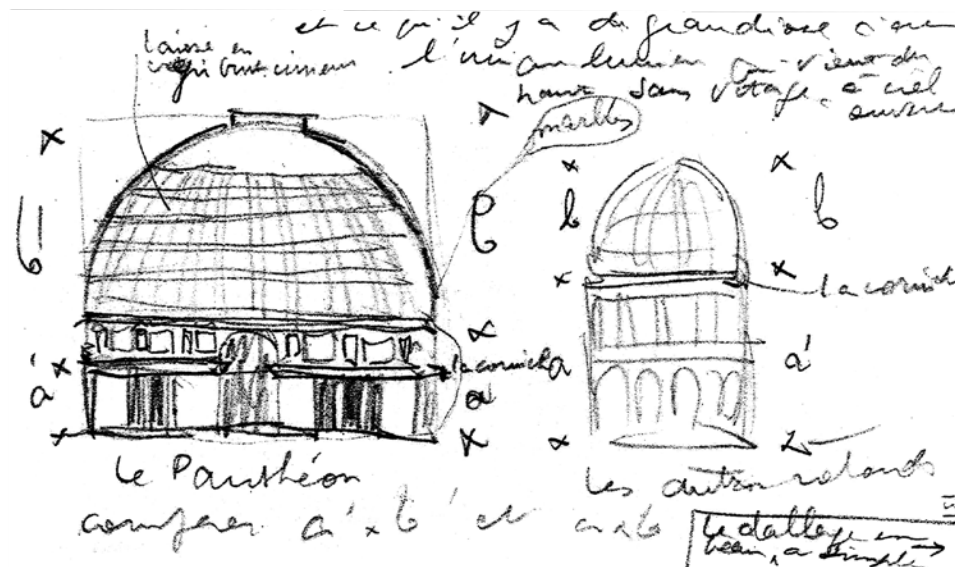 et ce qu'il y a de grandiose c'est
l'unique lumière qui vient du
haut sans vitrage, à ciel
ouvert
laissé en
marbles
b
b
b
b
la corniche
la corniche
a'
a'
a
a'
Le Panthéon
les autres rotonds
comparer a' x b' et a x b
le dallage en
beau, a simple